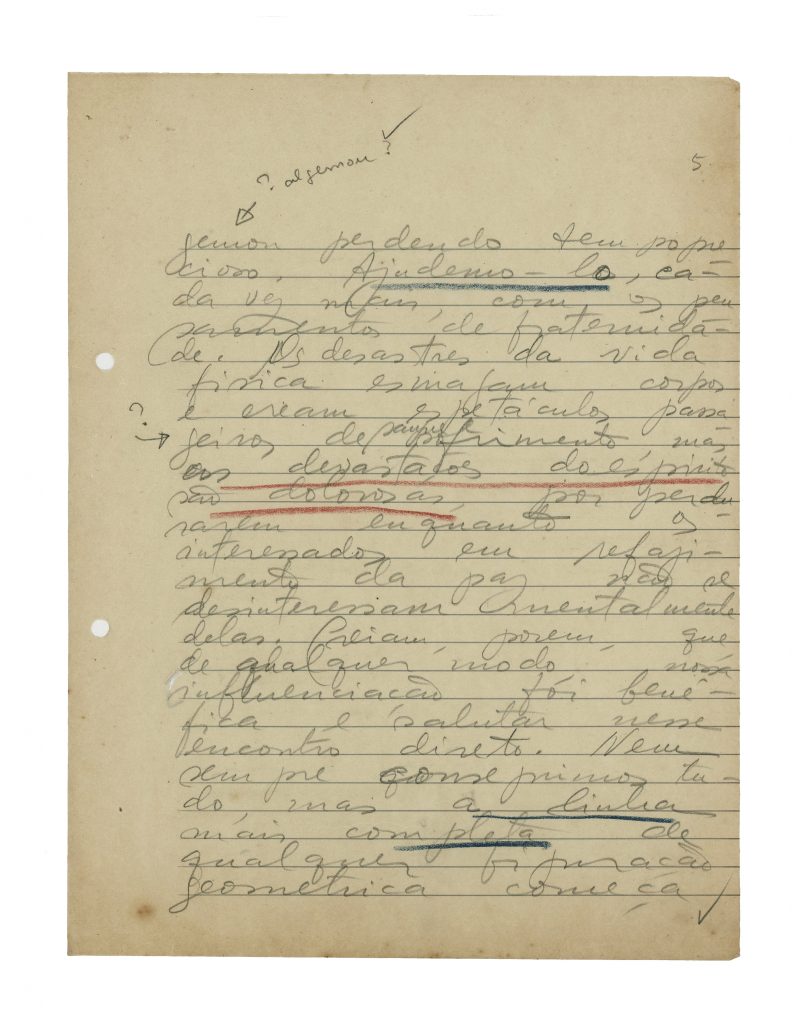 5.
? algemou ?
gemou perdendo tempo pre
cioso. Ajudemo-lo, ca-
da vez mais, com os pen
samentos de fraternida-
de. Os desastres da vida
física esmagam corpos
e cream espetáculos passa
?
geiros de sangue e sofrimento, mas
os devastações do espirito
são dolorosas, por perdu
rarem enquanto os
interessados em refazi-
mento da paz não se
desinteressam mentalmente
delas. Creiam, porem, que
de qualquer modo nossa
influenciação foi bené-
fica e salutar nesse
encontro direto. Nem
sempre conseguimos tu-
do, mas a linha
mais completa de
qualquer figuração
geometrica começa